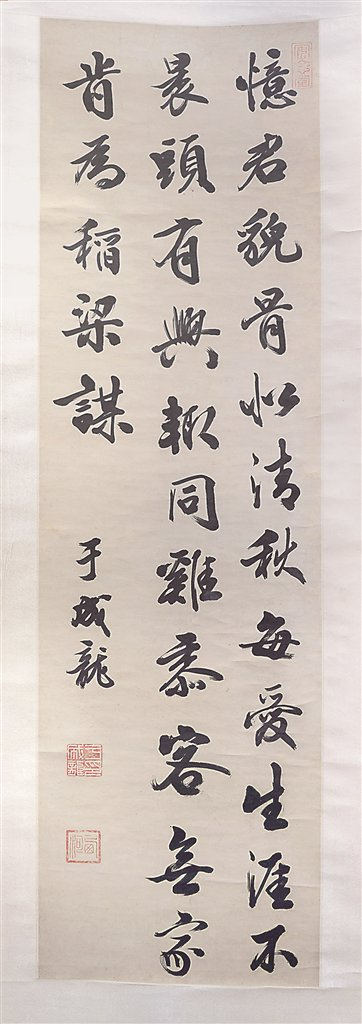 憶君貌骨似清秋每愛生涯不
裹頭有興輙同雞黍客無家
肯為稻粱謀
于成龍